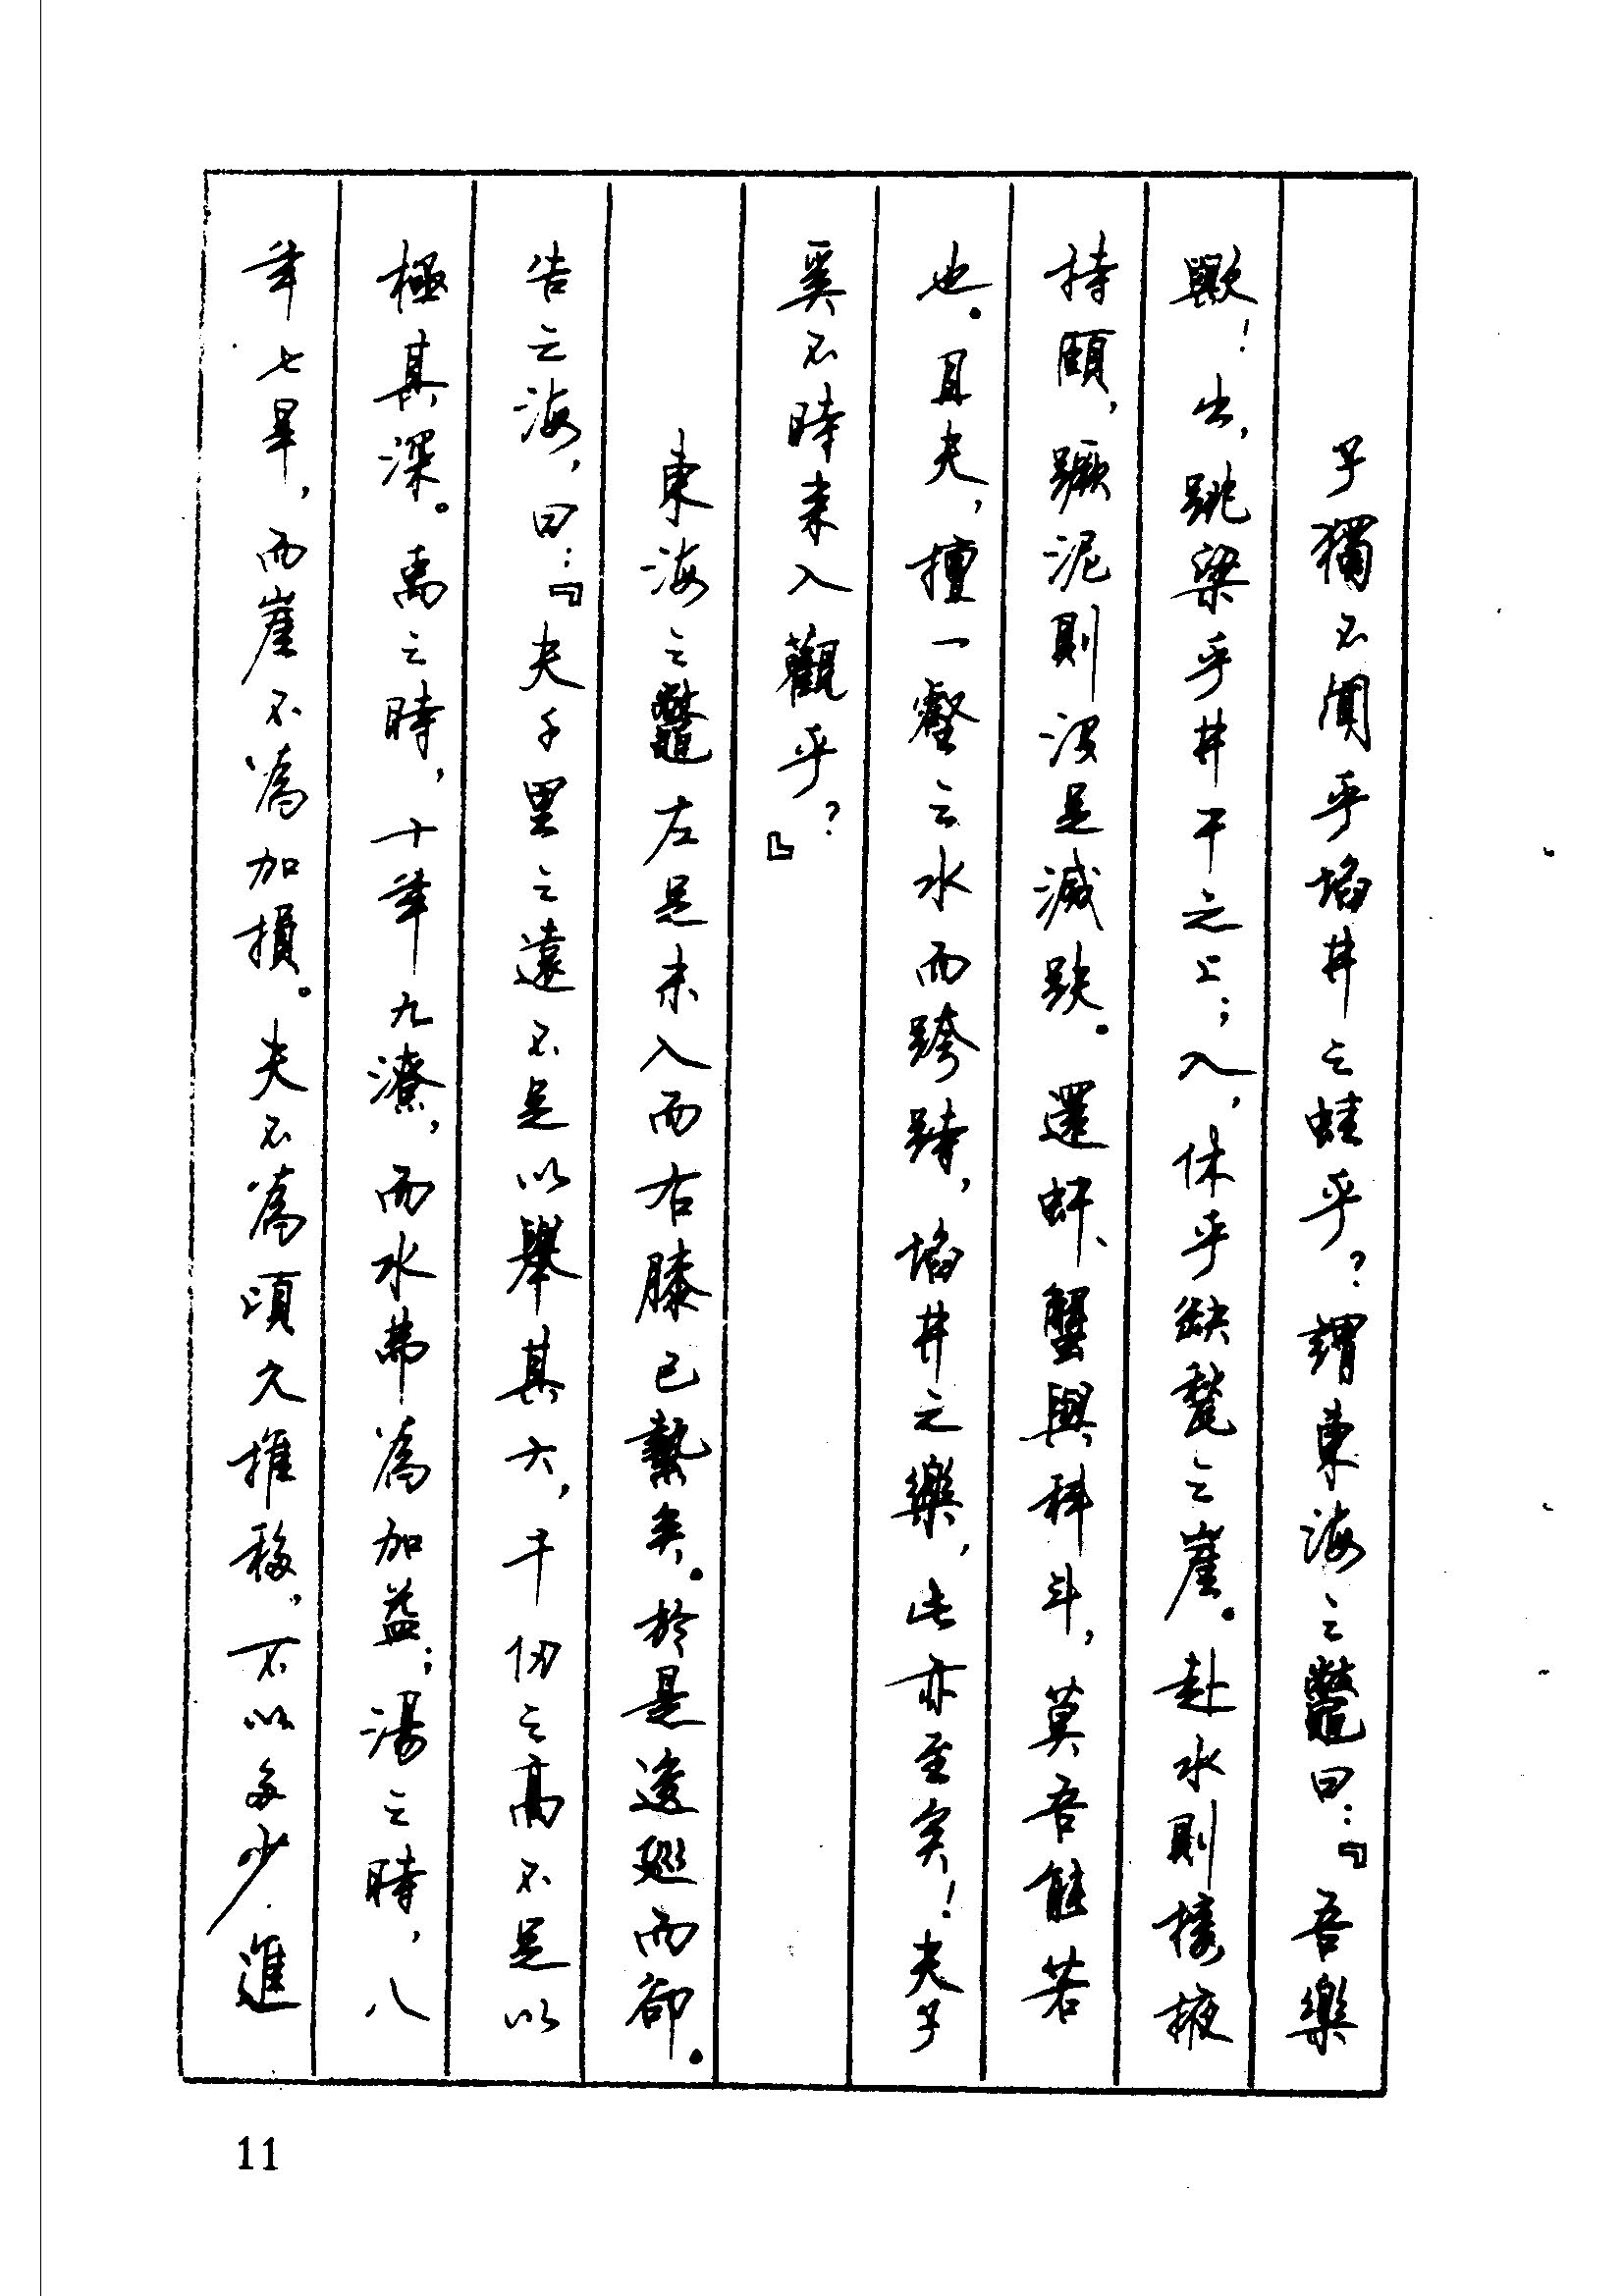 子獨不聞乎埳井之蛙乎？謂東海之鼈曰：『吾樂
歟！出，跳梁乎井干之上；入，休乎缺甃之崖。赴水則接掖
持頤，蹶泥則沒足滅跗。還虷、蟹與科斗，莫吾能若
也。且夫，擅一壑之水而跨跱，埳井之樂，此亦至矣！夫子
奚不時來入觀乎？』
東海之鼈左足未入而右膝已縶矣。於是逡廵而卻。
告之海，曰：『夫千里之遠不足以舉其大，千仞之高不足以
極其深。禹之時，十年九潦，而水弗為加益；湯之時，八
年七旱，而崖不為加損。夫不為頃久推移，不以多少進
11